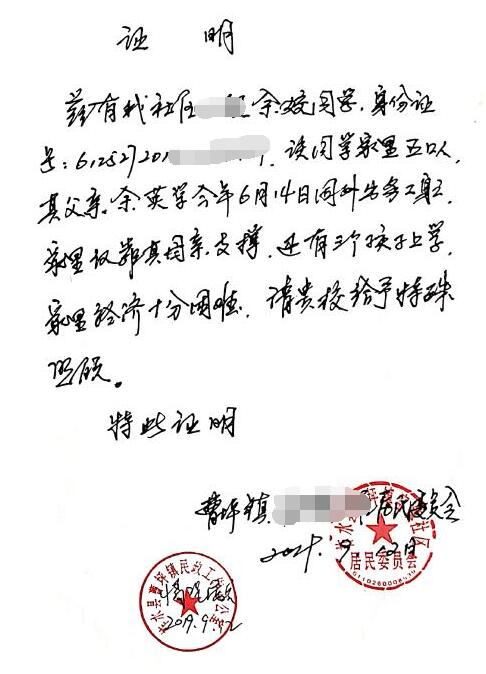 证 明
兹有我社区 余姣同学，身份证
号：612527201 该同学家里五口人，
其父亲余英学今年6月14日因外出务工身亡，
家里仅靠其母亲支撑，还有三个孩子上学，
家里经济十分困难，请贵校给予特殊
照顾。
特此证明
曹坪镇 居民委员会
2019.9.02日
居民委员会
6110260008430
柞水县曹坪镇民政工作办公室
情况属实
2019.9.12